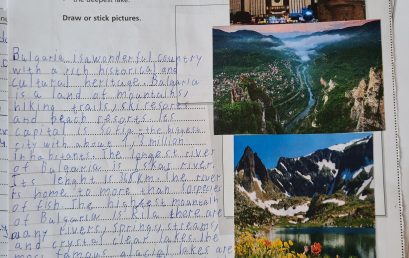 the deepest lake.
Draw or stick pictures.
Bulgaria is a wonderful country
with a rich historical and
cultural heritage. Bulgaria
is a land of mountains,
hiking trails, ski resorts
and beach resorts. Its
capital is Sofia - the
city with about 1,3 million
inhabitants. The longest river
of Bulgaria is Iskar river.
Its is 368 km. The river
is home to more than species
of fish. The highest mountain
of Bulgaria is Rila there are
many rivers, springs, streams,
and crystal clear lakes. The
most famous glacial lakes are